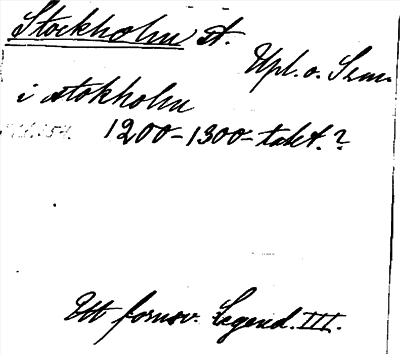 Stockholm st.
Upl. o. Sdm.
i stokholm
1200-1300-talet.?
Ett fornsv. Legend. III.